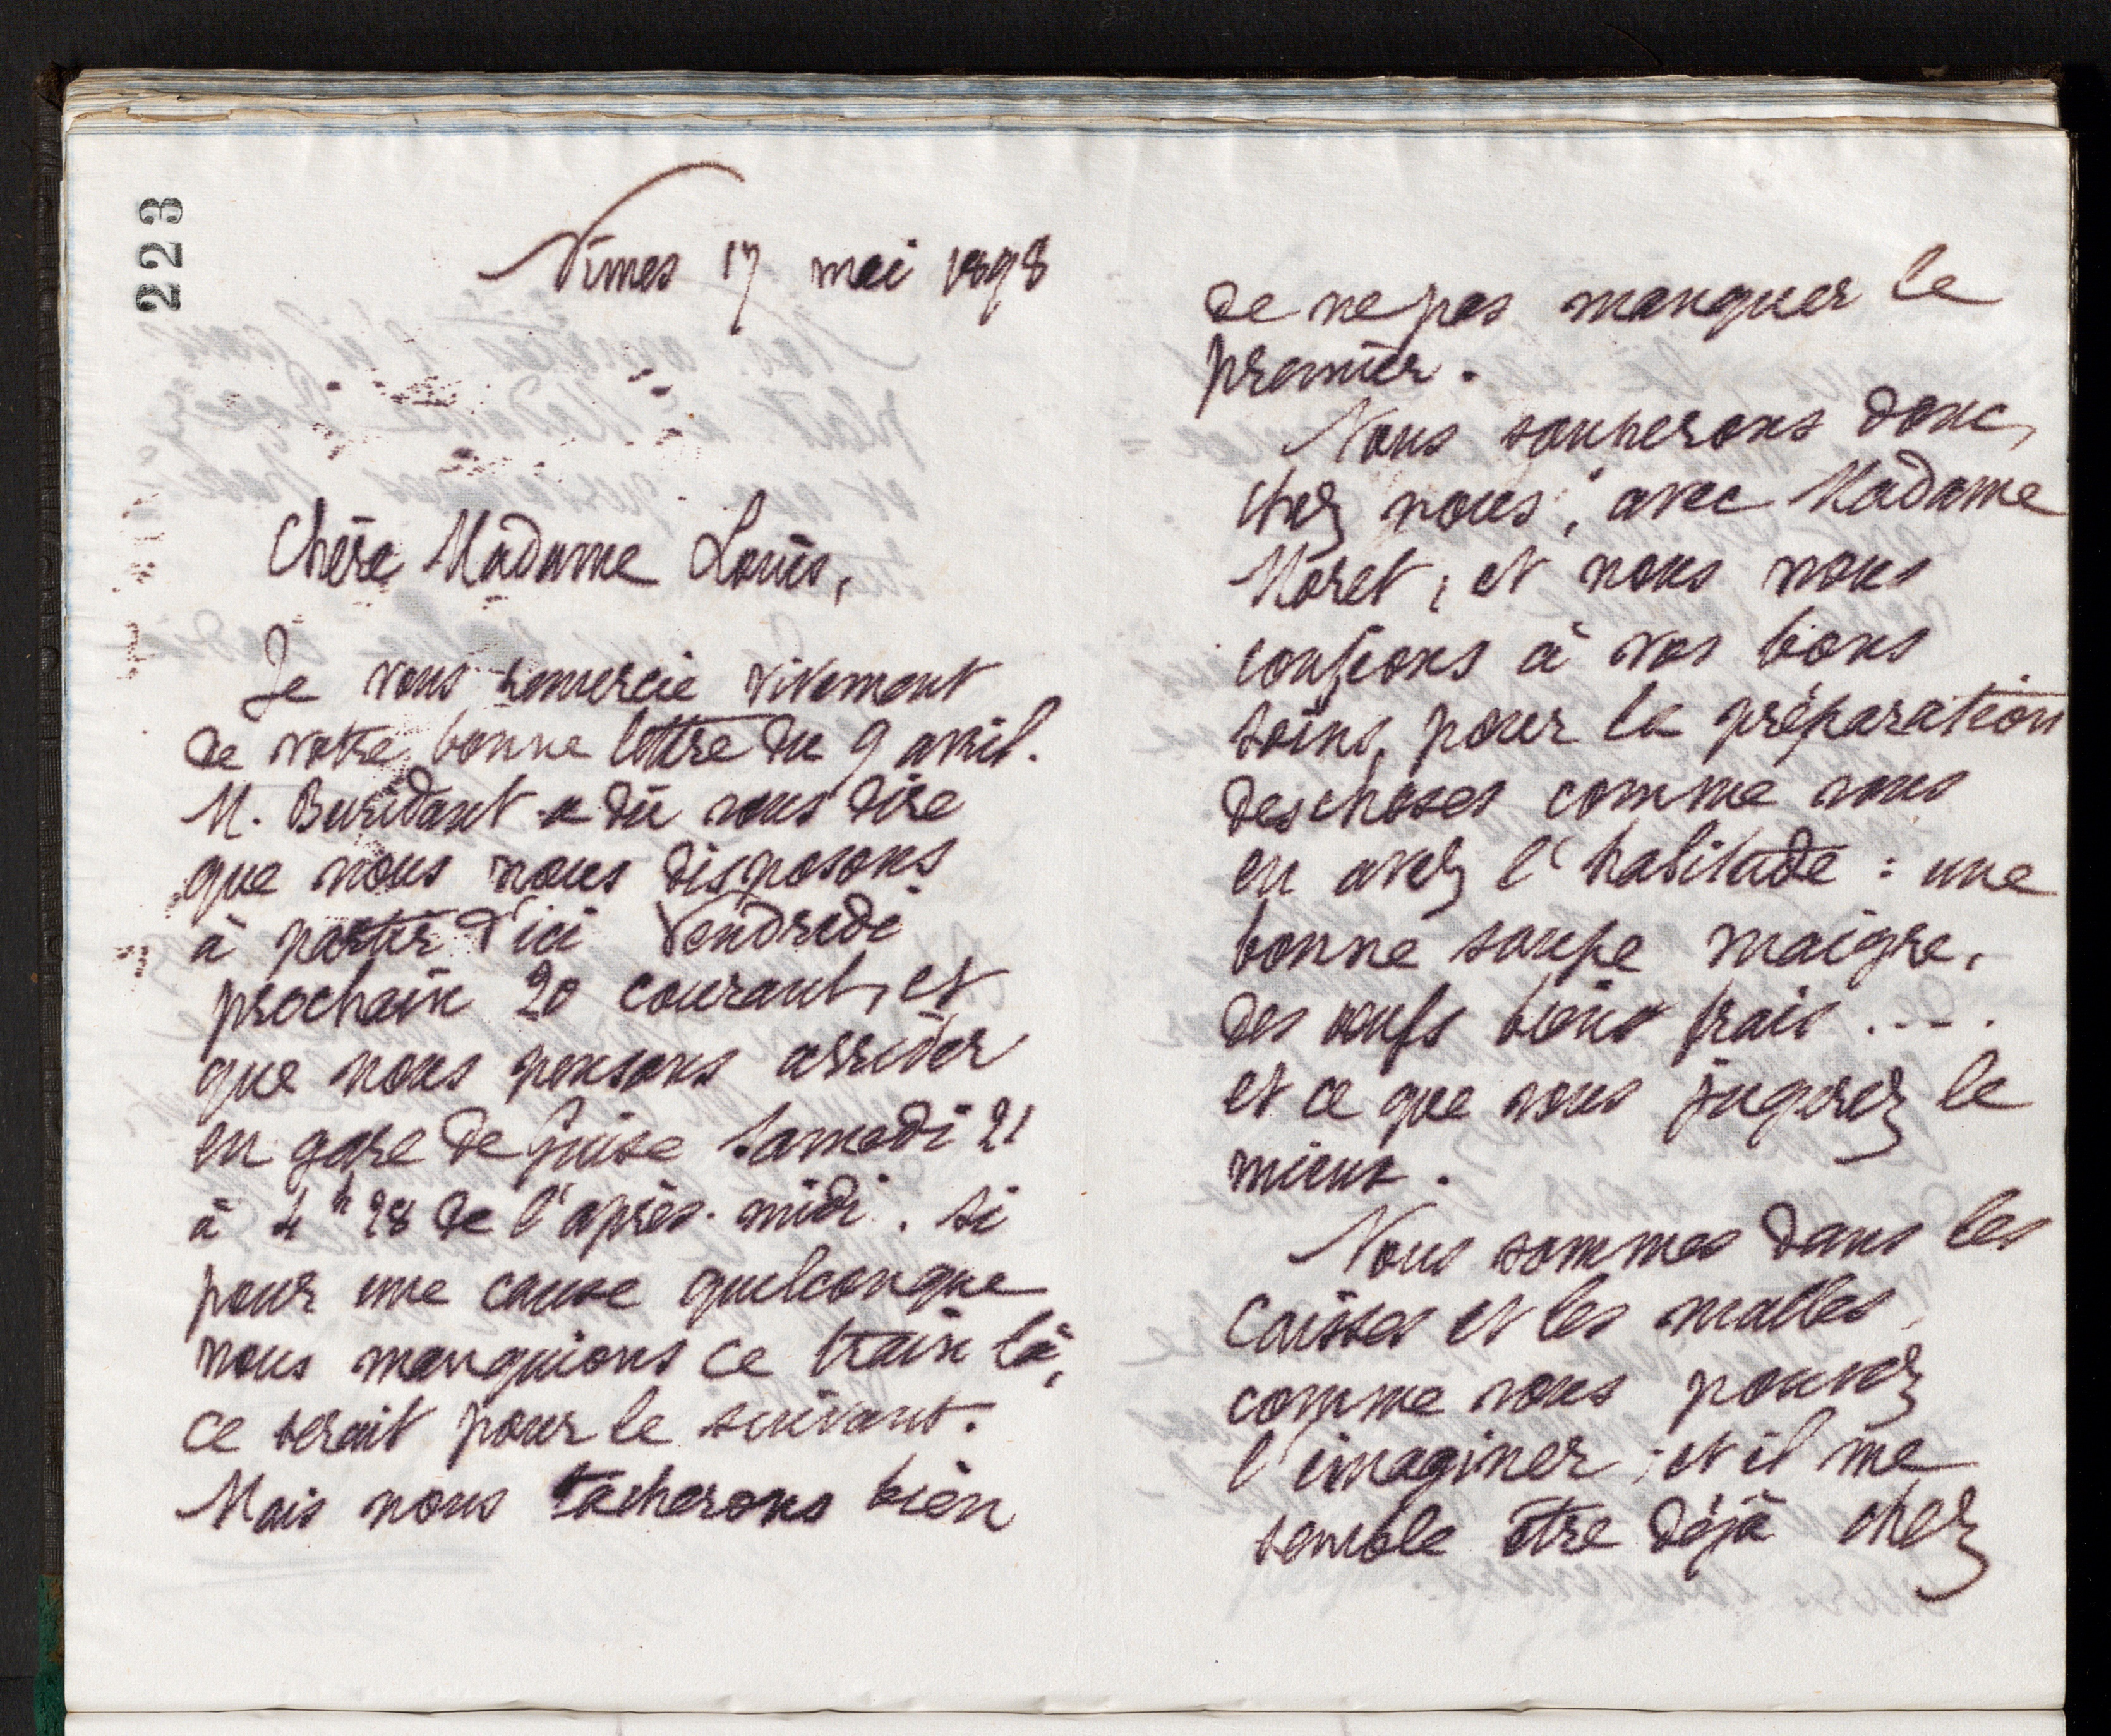 223
Nîmes 17 mai 1898
Chère Madame Louis,
Je vous remercie vivement
de votre bonne lettre du 9 avril.
M. Buridant a dû vous dire
que nous nous disposons
à partir d'ici Vendredi
prochain 20 courant, et
que nous pensons arriver
en gare de Guise Samedi 21
à 4h 28 de l'après-midi. Si
pour une cause quelconque
nous manquions ce train là,
ce serait pour le suivant.
Mais nous tâcherons bien
de ne pas manquer le
premier.
Nous souperons donc,
chez nous, avec Madame
Moret, et nous nous
confions à vos bons
soins, pour la préparation
des choses comme vous
en avez l'habitude : une
bonne soupe maigre,
des œufs biens frais ....
et ce que vous jugerez le
mieux.
Nous sommes dans les
caisses et les malles,
comme vous pouvez
l'imaginer ; et il me
semble être déjà chez